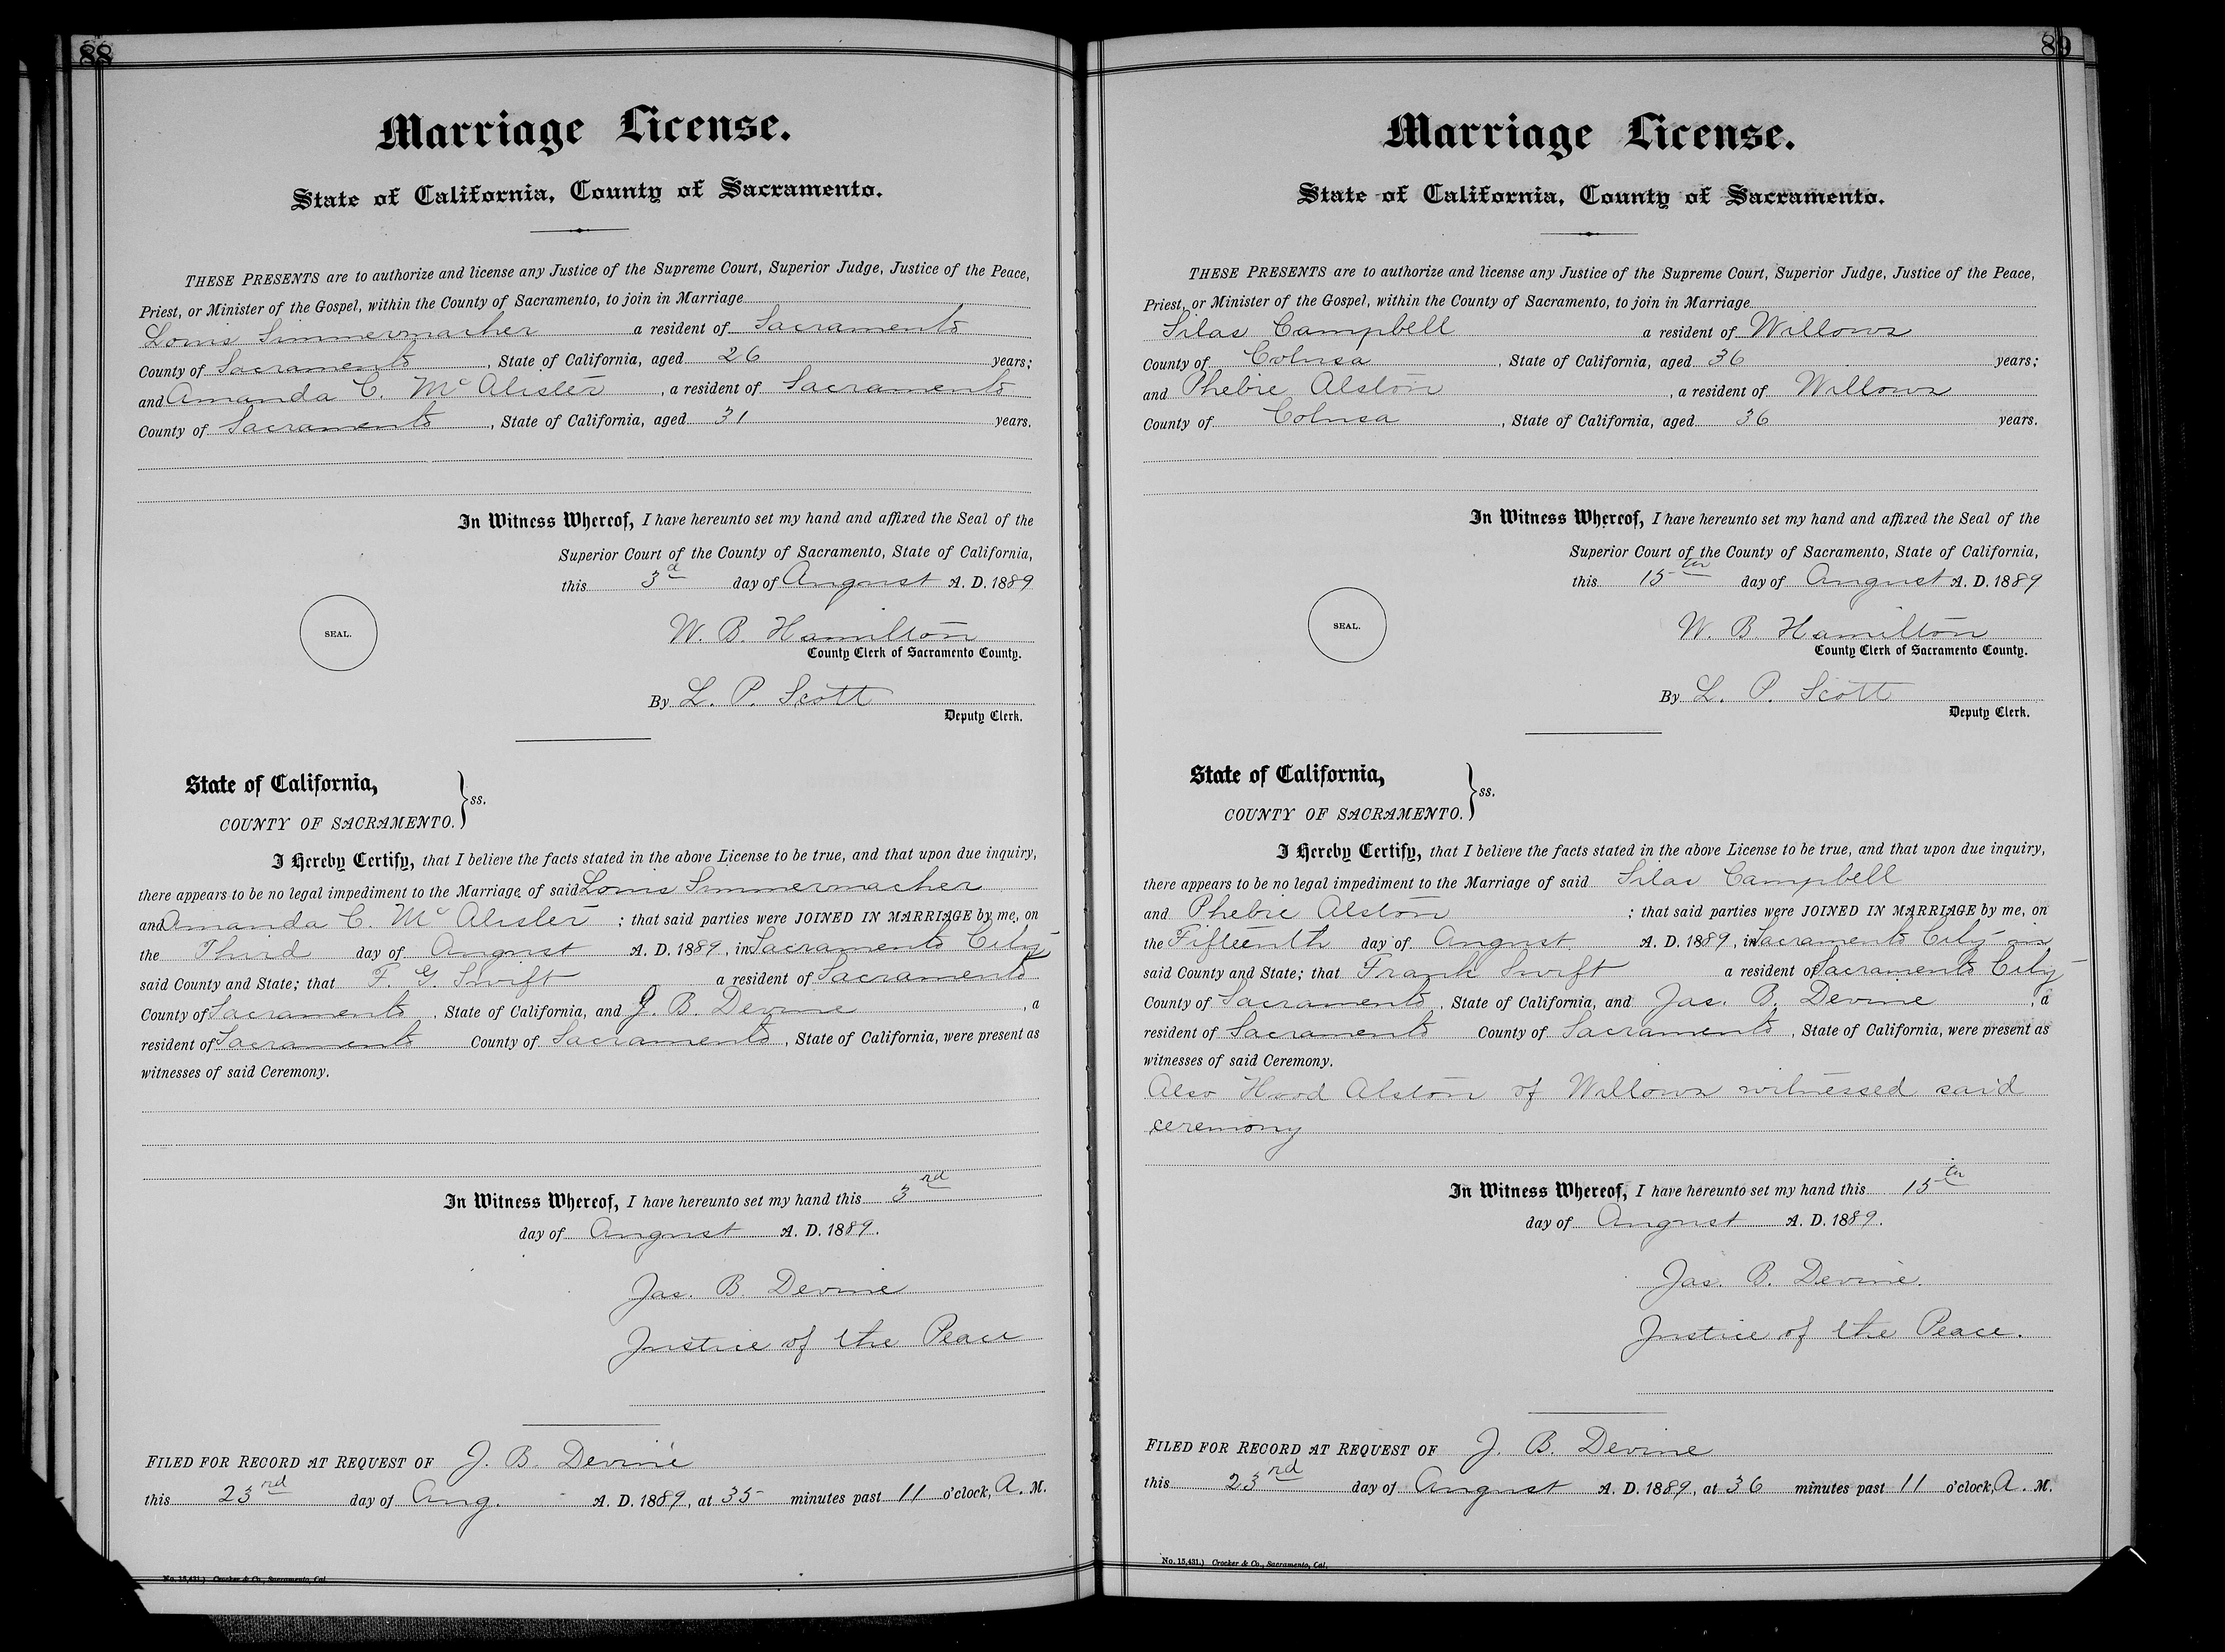 88
Marriage License.
State of California, County of Sacramento.
THESE PRESENTS are to authorize and license any Justice of the Supreme Court, Superior Judge, Justice of the Peace,
Priest, or Minister of the Gospel, within the County of Sacramento, to join in Marriage
Louis Simmermacher a resident of Sacramento
County of Sacramento, State of California, aged 26 years;
and Amanda C. McAlister, a resident of Sacramento
County of Sacramento, State of California, aged 31 years.
In Witness Whereof, I have hereunto set my hand and affixed the Seal of the
Superior Court of the County of Sacramento, State of California,
this 3d day of August A. D. 1889
SEAL.
W. B. Hamilton
County Clerk of Sacramento County.
By L. P. Scott
Deputy Clerk.
State of California,
COUNTY OF SACRAMENTO. } ss.
I Hereby Certify, that I believe the facts stated in the above License to be true, and that upon due inquiry,
there appears to be no legal impediment to the Marriage of said Louis Simmermacher
and Amanda C. McAlister; that said parties were JOINED IN MARRIAGE by me, on
the Third day of August A. D. 1889, in Sacramento City
said County and State; that F. G. Swift a resident of Sacramento
County of Sacramento, State of California, and J. B. Devine, a
resident of Sacramento County of Sacramento, State of California, were present as
witnesses of said Ceremony.
In Witness Whereof, I have hereunto set my hand this 3rd
day of August A. D. 1889.
Jas. B. Devine
Justice of the Peace
FILED FOR RECORD AT REQUEST OF J. B. Devine
this 23rd day of Aug. A. D. 1889, at 35 minutes past 11 o'clock, A. M.
No. 15,431.) Crocker & Co., Sacramento, Cal.
89
Marriage License.
State of California, County of Sacramento.
THESE PRESENTS are to authorize and license any Justice of the Supreme Court, Superior Judge, Justice of the Peace,
Priest, or Minister of the Gospel, within the County of Sacramento, to join in Marriage
Silas Campbell a resident of Willows
County of Colusa, State of California, aged 36 years;
and Phebie Alston, a resident of Willows
County of Colusa, State of California, aged 36 years.
In Witness Whereof, I have hereunto set my hand and affixed the Seal of the
Superior Court of the County of Sacramento, State of California,
this 15th day of August A. D. 1889
SEAL.
W. B. Hamilton
County Clerk of Sacramento County.
By L. P. Scott
Deputy Clerk.
State of California,
COUNTY OF SACRAMENTO. } ss.
I Hereby Certify, that I believe the facts stated in the above License to be true, and that upon due inquiry,
there appears to be no legal impediment to the Marriage of said Silas Campbell
and Phebie Alston; that said parties were JOINED IN MARRIAGE by me, on
the Fifteenth day of August A. D. 1889, in Sacramento City in
said County and State; that Frank Swift a resident of Sacramento City
County of Sacramento, State of California, and Jas. B. Devine, a
resident of Sacramento County of Sacramento, State of California, were present as
witnesses of said Ceremony.
Also Hood Alston of Willows witnessed said
ceremony
In Witness Whereof, I have hereunto set my hand this 15th
day of August A. D. 1889.
Jas. B. Devine.
Justice of the Peace.
FILED FOR RECORD AT REQUEST OF J. B. Devine
this 23rd day of August A. D. 1889, at 36 minutes past 11 o'clock, A. M.
No. 15,431.) Crocker & Co., Sacramento, Cal.